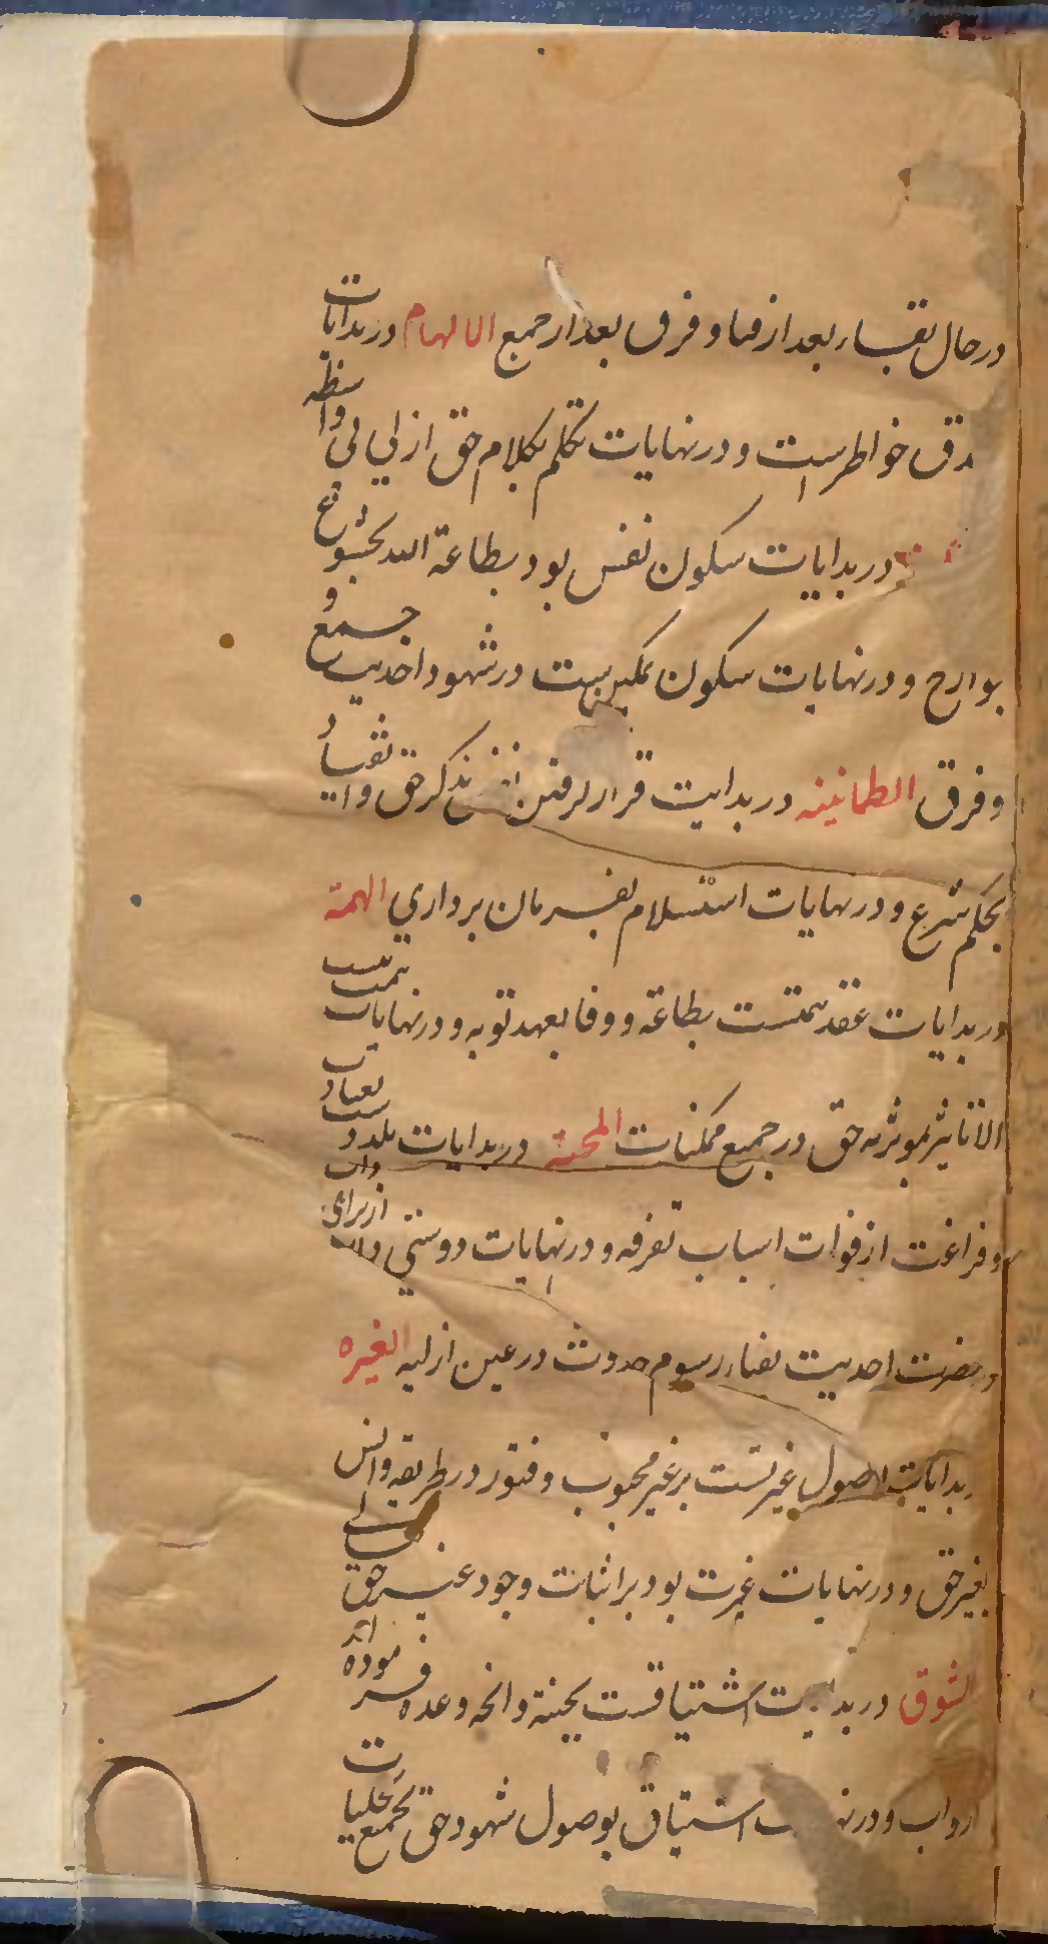 در حال بقا بعد از فنا و فرق بعد از جمع الالهام در بدایات
دق خواطر است و در نهایات تکلم بکلام حق ازلی بی واسطه
در بدایات سکون نفس بود بطاعة الله بخشوع
جوارح و در نهایات سکون تمکین است در شهود احدیت جمع و
و فرق الطمانینه در بدایت قرار گرفتن نفس بذکر حق و انقیاد
بحکم شرع و در نهایات استسلام بفرمان برداری الهمة
در بدایات عقد همتست بطاعة و وفا بعهد توبه و در نهایات
الا تاثیر بموثریه حق در جمیع ممکنات المحبة در بدایات تلذذست بعبادت
و فراغت از فوات اسباب تفرقه و در نهایات دوستی ذات از برای ذات
در حضرت احدیت بفناء رسوم حدوث در عین ازلیه الغیره
بدایات اصول غیرتست بر غیر محبوب و فتور در طریقه و انس
بغیر حق و در نهایات غیرت بود بر اثبات وجود غیر حق
الشوق در بدایت اشتیاقست بجنة و آنچه وعده فرموده اند
ثواب و در اشتیاق بوصول شهود حق بجمع تجلیات